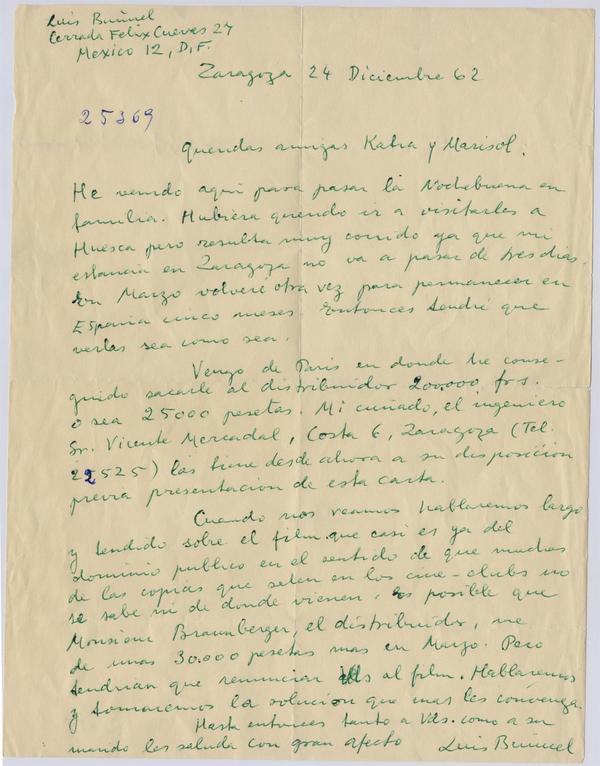 Luis Buñuel
Cerrada Felix Cuevas 27
Mexico 12, D.F.
Zaragoza 24 Diciembre 62
25369
Queridas amigas Katia y Marisol.
He venido aqui para pasar la Nochebuena en
familia. Hubiera querido ir a visitarles a
Huesca pero resulta muy corrido ya que mi
estancia en Zaragoza no va a pasar de tres dias.
En Marzo volveré otra vez para permanecer en
España cinco meses. Entonces tendré que
verlas sea como sea.
Vengo de Paris en donde he conse-
guido sacarle al distribuidor 200.000 frs.
o sea 25000 pesetas. Mi cuñado, el ingeniero
Sr. Vicente Mercadal, Costa 6, Zaragoza (Tel.
22525) las tiene desde ahora a su disposición
previa presentacion de esta carta.
Cuando nos veamos hablaremos largo
y tendido sobre el film que casi es ya del
dominio publico en el sentido de que muchas
de las copias que salen en los cine-clubs no
se sabe ni de donde vienen. Es posible que
Monsieur Braunberger, el distribuidor, me
de unas 30.000 pesetas mas en Marzo. Pero
tendrian que renunciar Vds al film. Hablaremos
y tomaremos la solución que mas les convenga.
Hasta entonces tanto a Vds. como a su
marido les saluda con gran afecto Luis Buñuel